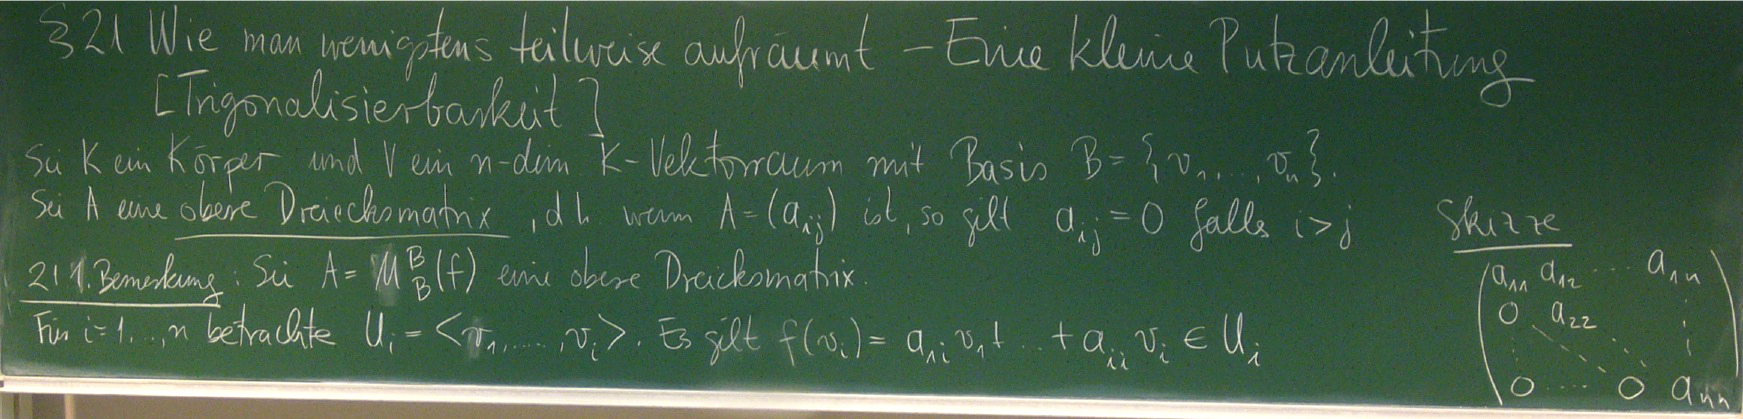 §21 Wie man wenigstens teilweise aufräumt – Eine kleine Putzanleitung
[Trigonalisierbarkeit]
Sei K ein Körper und V ein n-dim K-Vektorraum mit Basis B = {v₁,...,vₙ}.
Sei A eine obere Dreiecksmatrix, d h wenn A = (aᵢⱼ) ist, so gilt aᵢⱼ = 0 falls i > j
21 1. Bemerkung: Sei A = M^B_B(f) eine obere Dreiecksmatrix.
Für i = 1,...,n betrachte Uᵢ = <v₁,.....,vᵢ>. Es gilt f(vᵢ) = a₁ᵢ v₁ + ... + aᵢᵢ vᵢ ∈ Uᵢ
Skizze
a₁₁ a₁₂ .... a₁ₙ
0 a₂₂
0 .... 0 aₙₙ